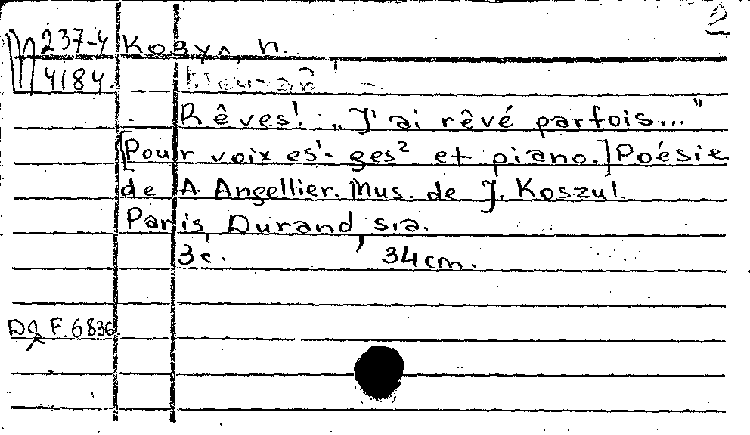 2
М 237-4 Козул, И.
4184.
Rêves! „J'ai rêvé parfois..."
[Pour voix es¹- ges² et piano.] Poésie
de A. Angellier. Mus. de J. Koszul
Paris, Durand, s.a.
3 c. 34 cm.
F. 6836